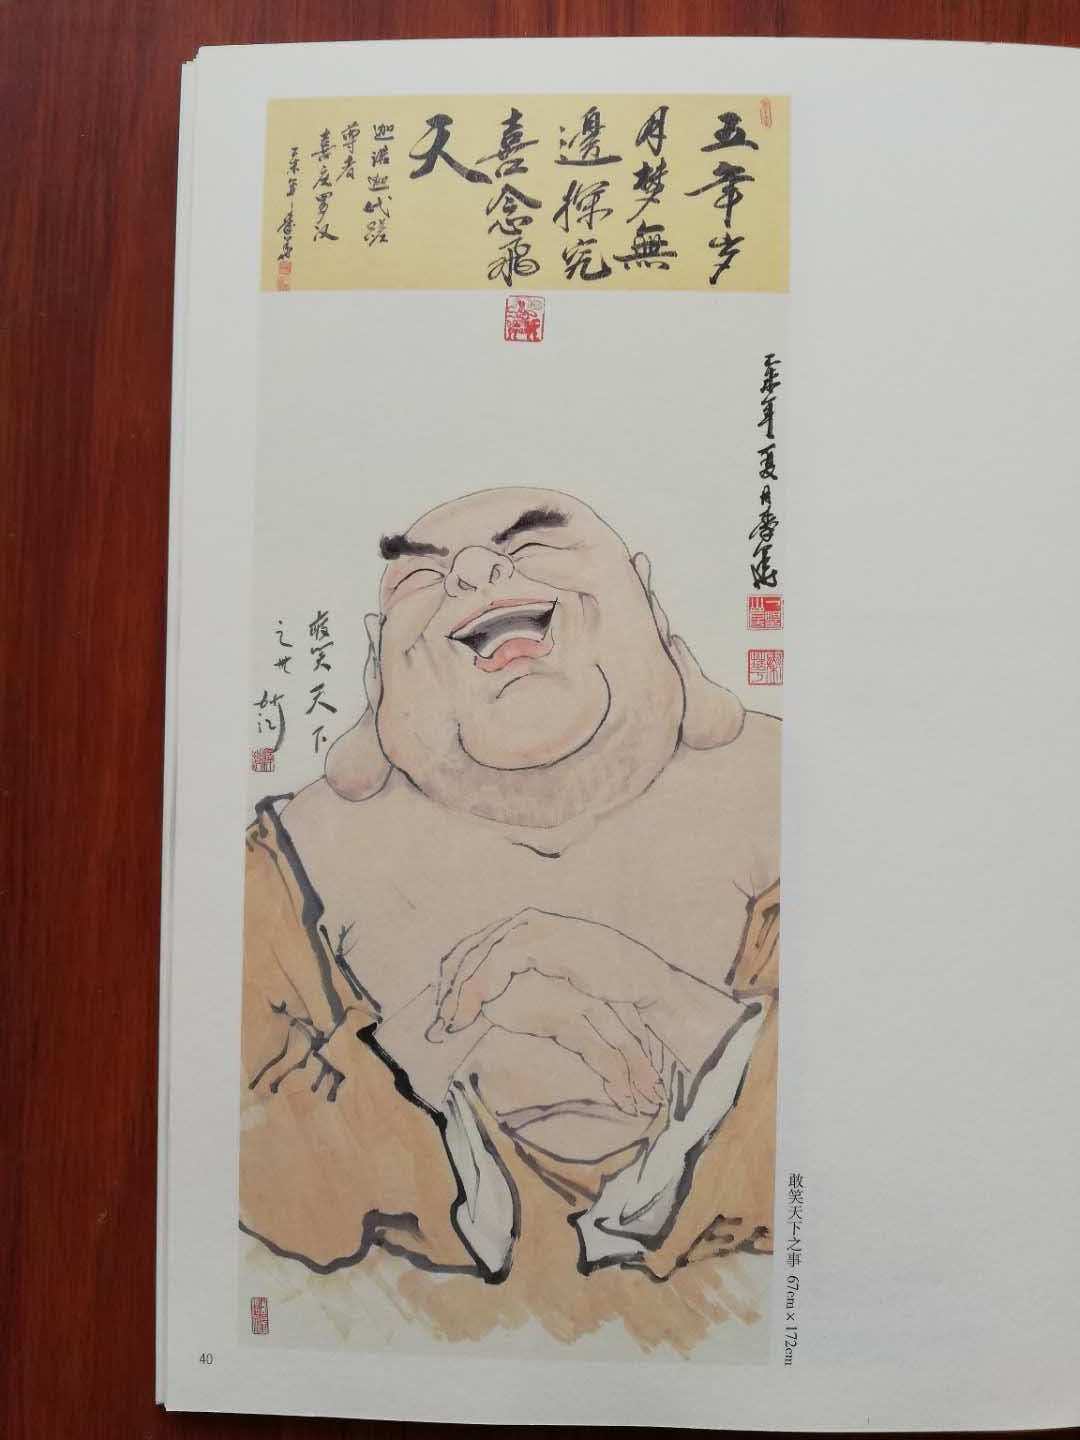 五年岁
月梦無
邊探究
喜念飛
天
迦诺迦代蹉
尊者
喜庆罗汉
乙未年
乙未年夏月
敢笑天下
敢笑天下之事 67cm×172cm
40